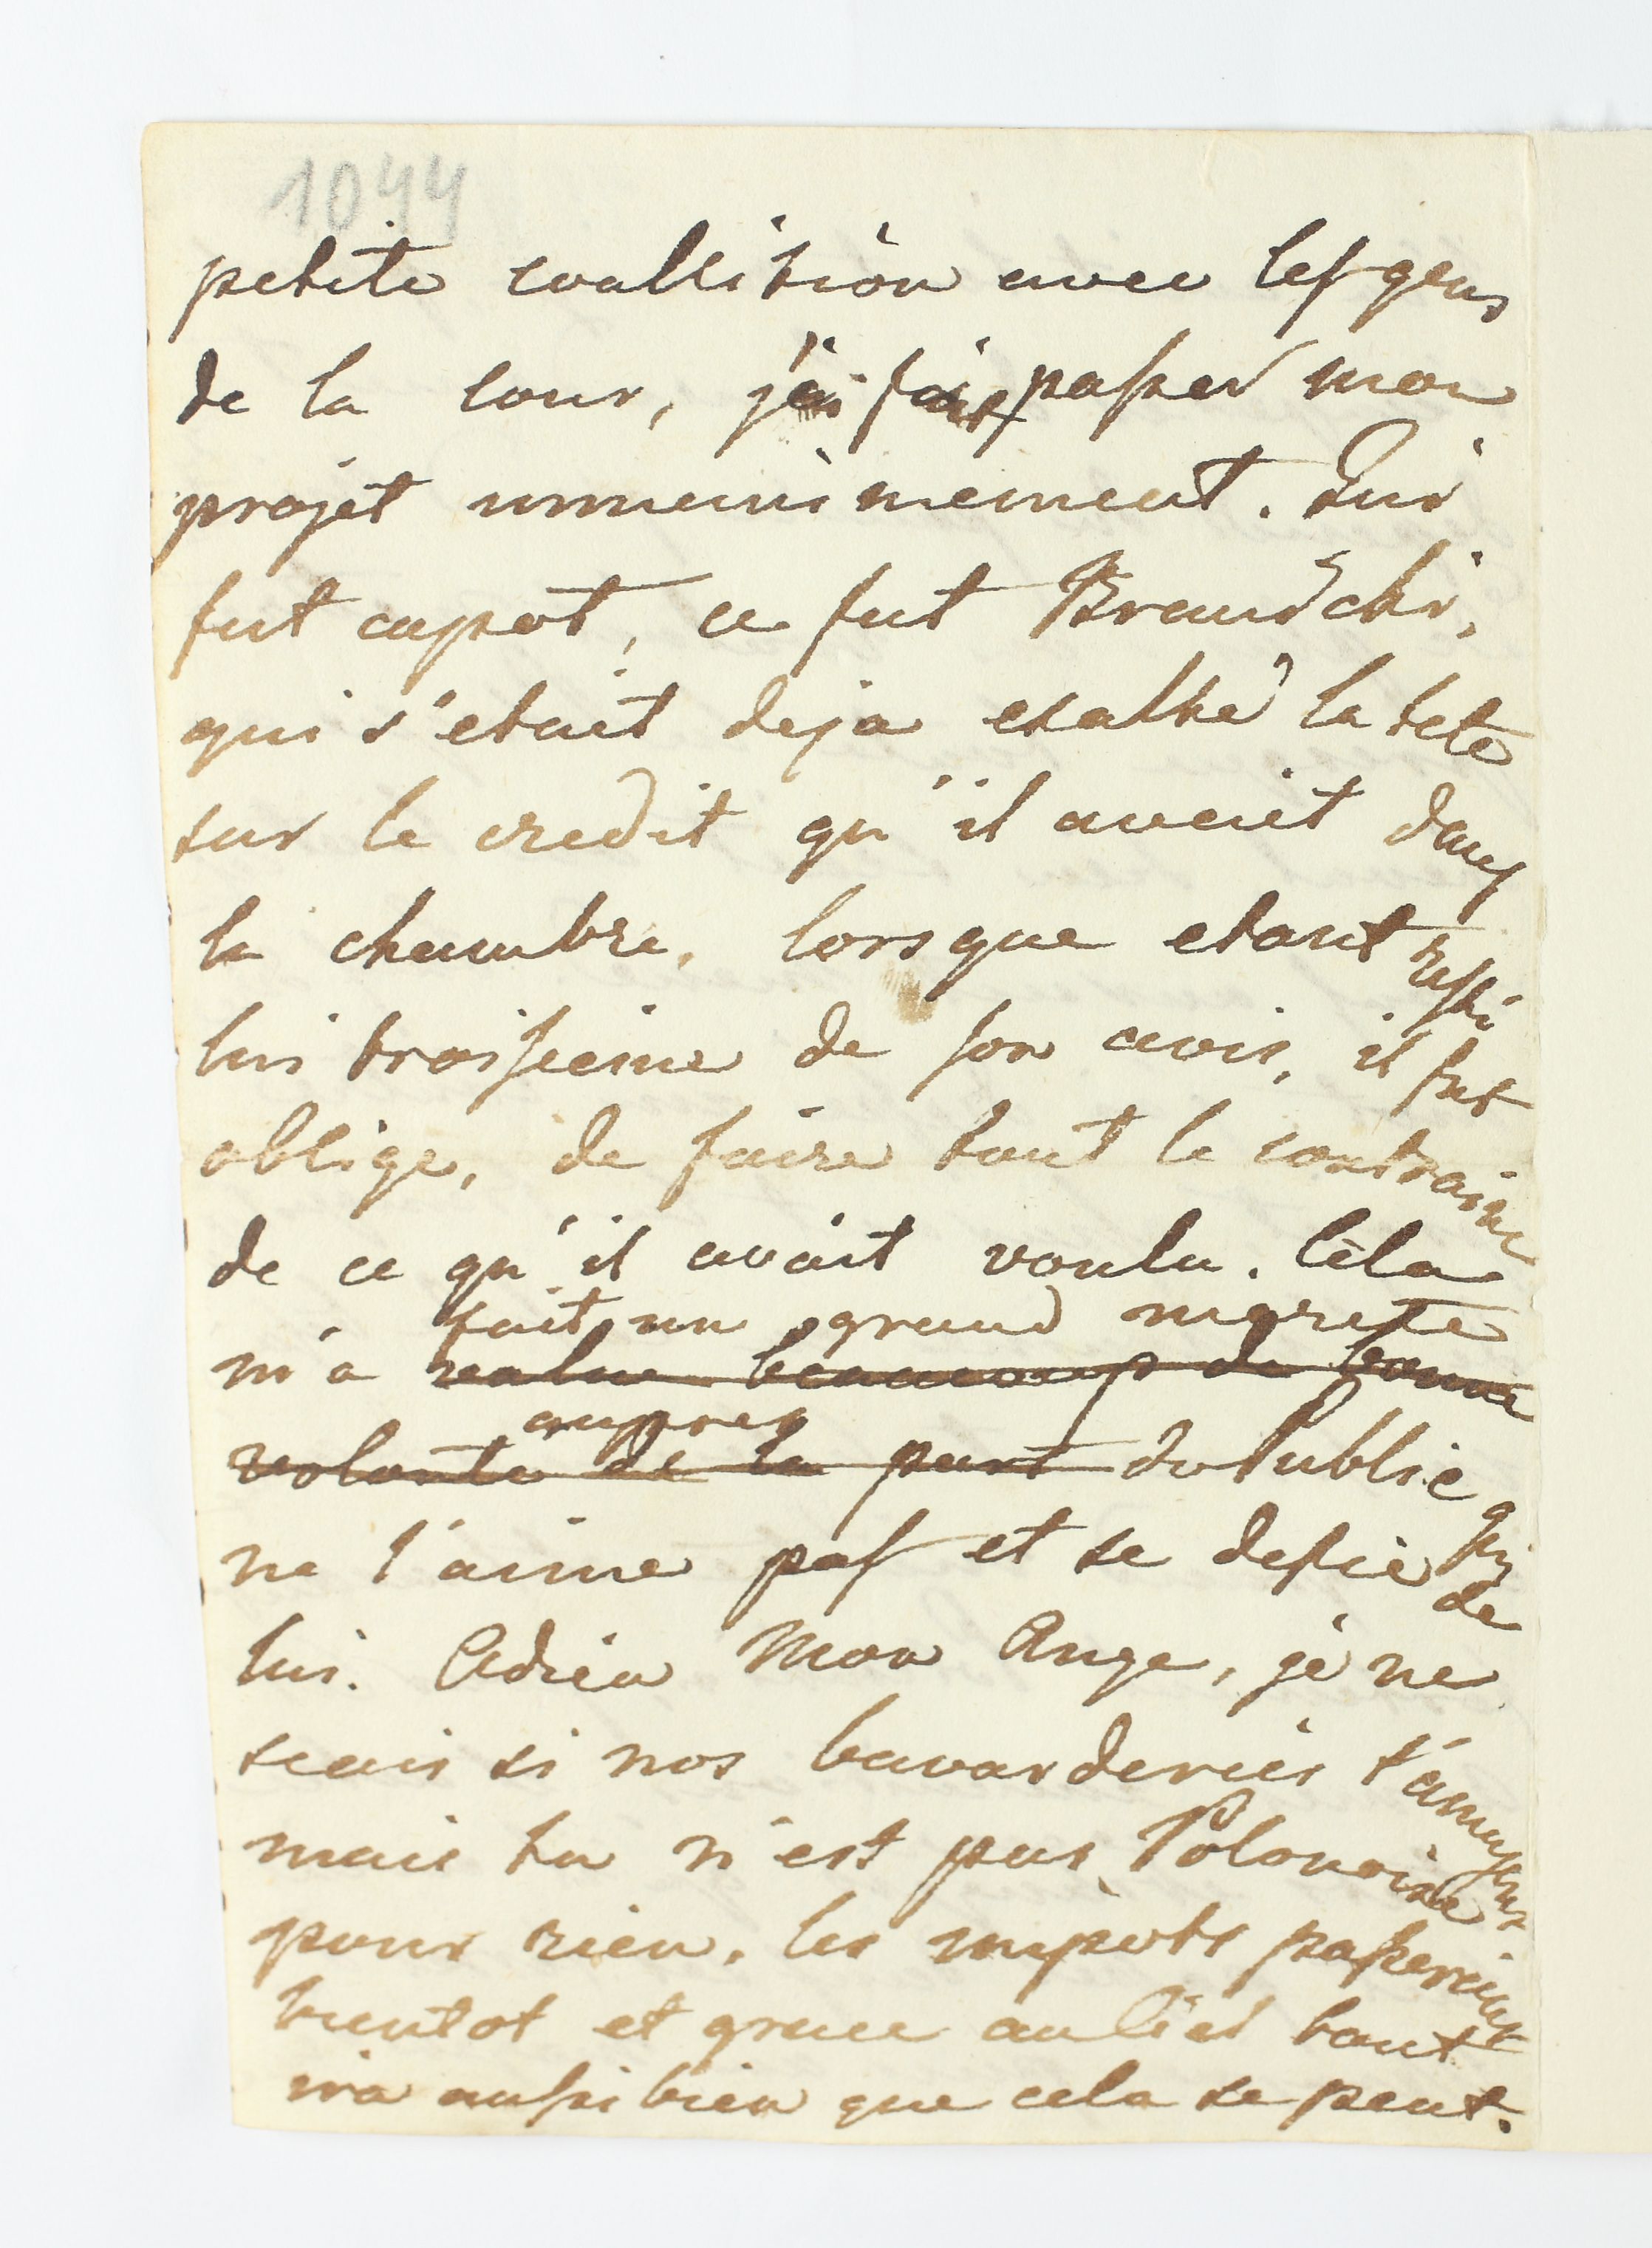 1044
petite coallision avec les gens
de la Cour, j'ai fais passer mon
projet unnanimement. Qui
fut capot, ce fut Braniçki,
qui s'etait deja exalté la tete
sur le credit qu'il avait dans
la chambre, lorsque etant resté
lui troisieme de son avis, il fut
oblige, de faire tout le contraire
de ce qu'il avait voulu. Cela
fait un grand merite
m'a value beaucoup de bonne
aupres
volonte de la part du Public qui
ne l'aime pas et se defie de
lui. Adieu Mon Ange, je ne
scais si nos bavarderies t'amusent
mais tu n'est pas Polonoise
pour rien. les impots passeront
bientot et grace au Ciel tout
ira aussi bien que cela se peut.